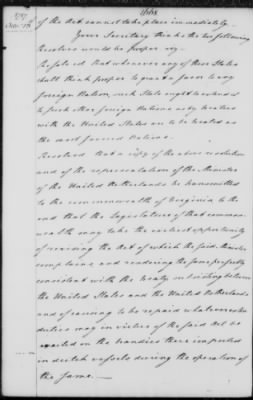 of the Act cannot take place immediately.—
Your Secretary thinks the two following
Resolves would be proper viz.
Resolved that whenever any of these States
shall think proper to grant a favor to any
foreign Nation, such State ought to extend
to such other foreign Nations as by treaties
with the United States are to be treated as
the most favored Nations.
Resolved that a copy of the above resolution
and of the representation of the Minister
of the United Netherlands be transmitted
to the commonwealth of Virginia to the
end that the Legislature of that common-
wealth may take the earliest opportunity
of revising the Act of which the said Minister
complains, and rendering the same perfectly
consistent with the treaty subsisting between
the United States and the United Netherlands
and of causing to be repaid whatever extra
duties may in virtue of the said Act be
exacted on the brandies there imported
in dutch vessels during the operation of
the same.—